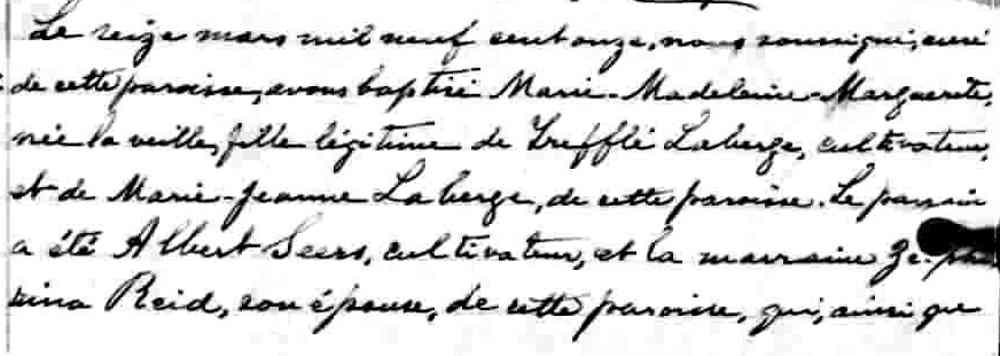 Le seize mars mil neuf cent onze, nous soussigné, curé
de cette paroisse, avons baptisé Marie-Madeleine-Marguerite,
née la veille, fille légitime de Trefflé Laberge, cultivateur,
et de Marie-Jeanne Laberge, de cette paroisse. Le parrain
a été Albert Seers, cultivateur, et la marraine Zéphi
rina Reid, son épouse, de cette paroisse, qui, ainsi que